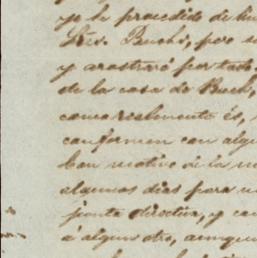 yo he procedido de
Sres. Buchs, pero
y arastraré por todo
de la casa de Buch,
como realmente és,
conformen con algu
ban motivo á la
algunos dias para
junta directiva, y
á algun otro, aunque